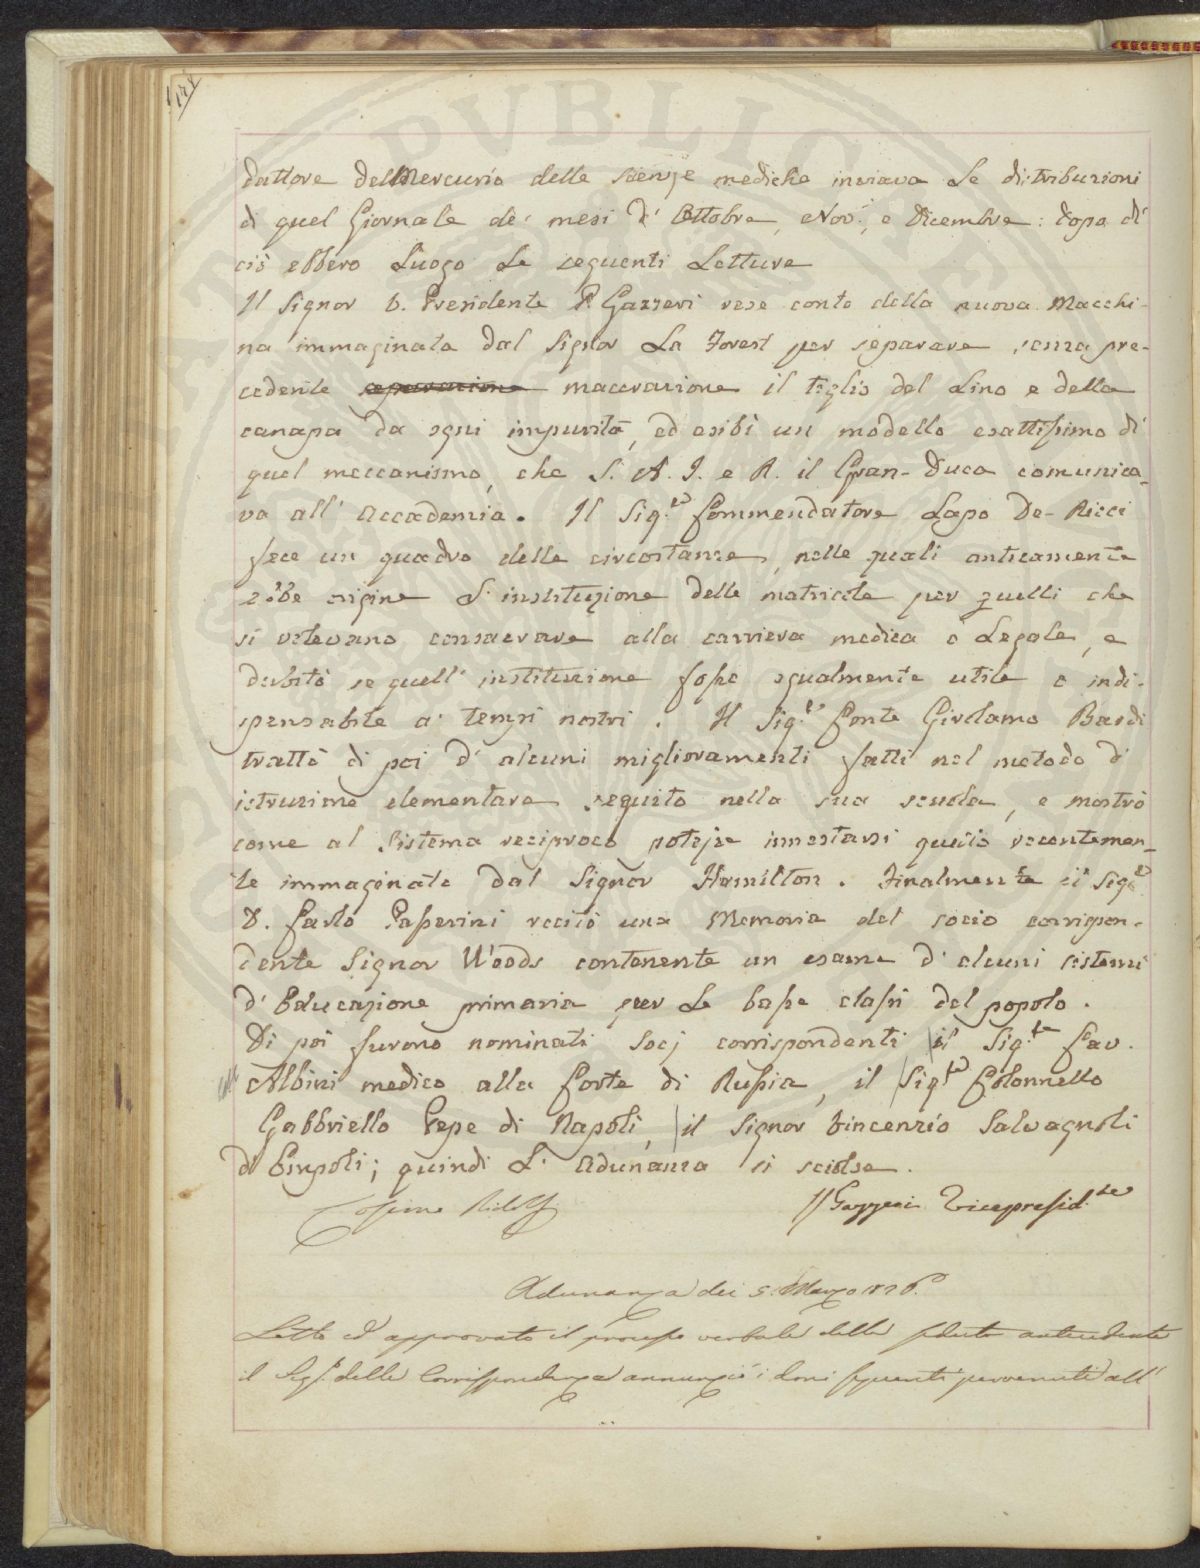 144
dattore del Mercurio delle Scienze mediche inviava Le distribuzioni
di quel Giornale de' mesi d' Ottobre, Nov.e, e Dicembre: dopo di
ciò ebbero Luogo Le seguenti Letture
Il Signor V. Presidente P. Gazzeri rese conto della nuova Macchi-
na immaginata dal Signor La Forest per separare, senza pre-
cedente separazione macerazione il tiglio del Lino e della
canapa da ogni impurità, ed esibì un modello esattissimo di
quel meccanismo, che S. A. I. e R. il Gran-Duca comunica-
va all' Accademia. Il Sig.re Commendatore Lapo De-Ricci
fece un quadro delle circostanze, nelle quali anticamente
ebbe origine L' instituzione delle matricole per quelli che
si volevano consacrare alla carriera medica o Legale, e
dubitò se quell' instituzione fosse egualmente utile e indi-
spensabile a' tempi nostri. Il Sig.re Conte Girolamo Bardi
trattò di poi d' alcuni miglioramenti fatti nel metodo d'
istruzione elementare seguito nella sua scuola, e mostrò
come al Sistema reciproco potesse innestarsi quello recentemen-
te immaginato dal Signor Hamilton. Finalmente il Sig.re
D. Carlo Passerini recitò una Memoria del socio corrispon-
dente Signor Woods contenente un esame d' alcuni sistemi
d' Educazione primaria per Le basse classi del popolo.
Di poi furono nominati Socj corrispondenti il Sig.re Cav.
Albini medico alla Corte di Russia, il Sig.re Colonnello
Gabbriello Pepe di Napoli, il Signor Vincenzio Salvagnoli
d' Empoli; quindi L' adunanza si sciolse.
Cosimo Ridolfi Gazzeri Vicepresid.te
Adunanza dei 5. Marzo 1826.
Letto ed approvato il processo verbale della seduta antecedente
il Seg.o delle Corrispondenze annunziò i doni seguenti pervenuti all'